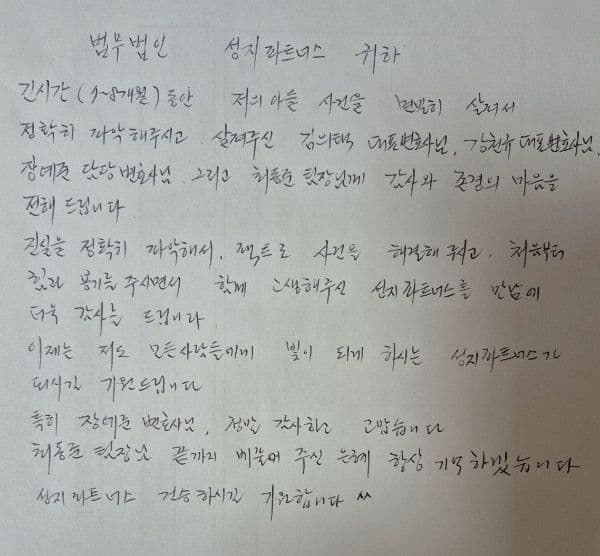 법무법인 성지파트너스 귀하
긴시간 (7~8개월) 동안 저의 아들 사건을 면밀히 살펴서
정확히 파악해주시고 살펴주신 김의택 대표변호사님, 김천규 대표변호사님,
장예준 담당변호사님 그리고 최동준 팀장님께 감사와 존경의 마음을
전해 드립니다
진실을 정확히 파악해서, 팩트로 사건을 해결해 주시고, 처음부터
힘과 용기를 주시면서 함께 고생해주신 성지파트너스를 만남에
더욱 감사를 드립니다
이제는 저도 모든사람들에게 빛이 되게 하시는 성지파트너스가
되시길 기원드립니다
특히 장예준 변호사님, 정말 감사하고 고맙습니다
최동준 팀장님 끝까지 베풀어 주신 은혜 항상 기억하겠습니다
성지파트너스 건승하시길 기원합니다 ^^